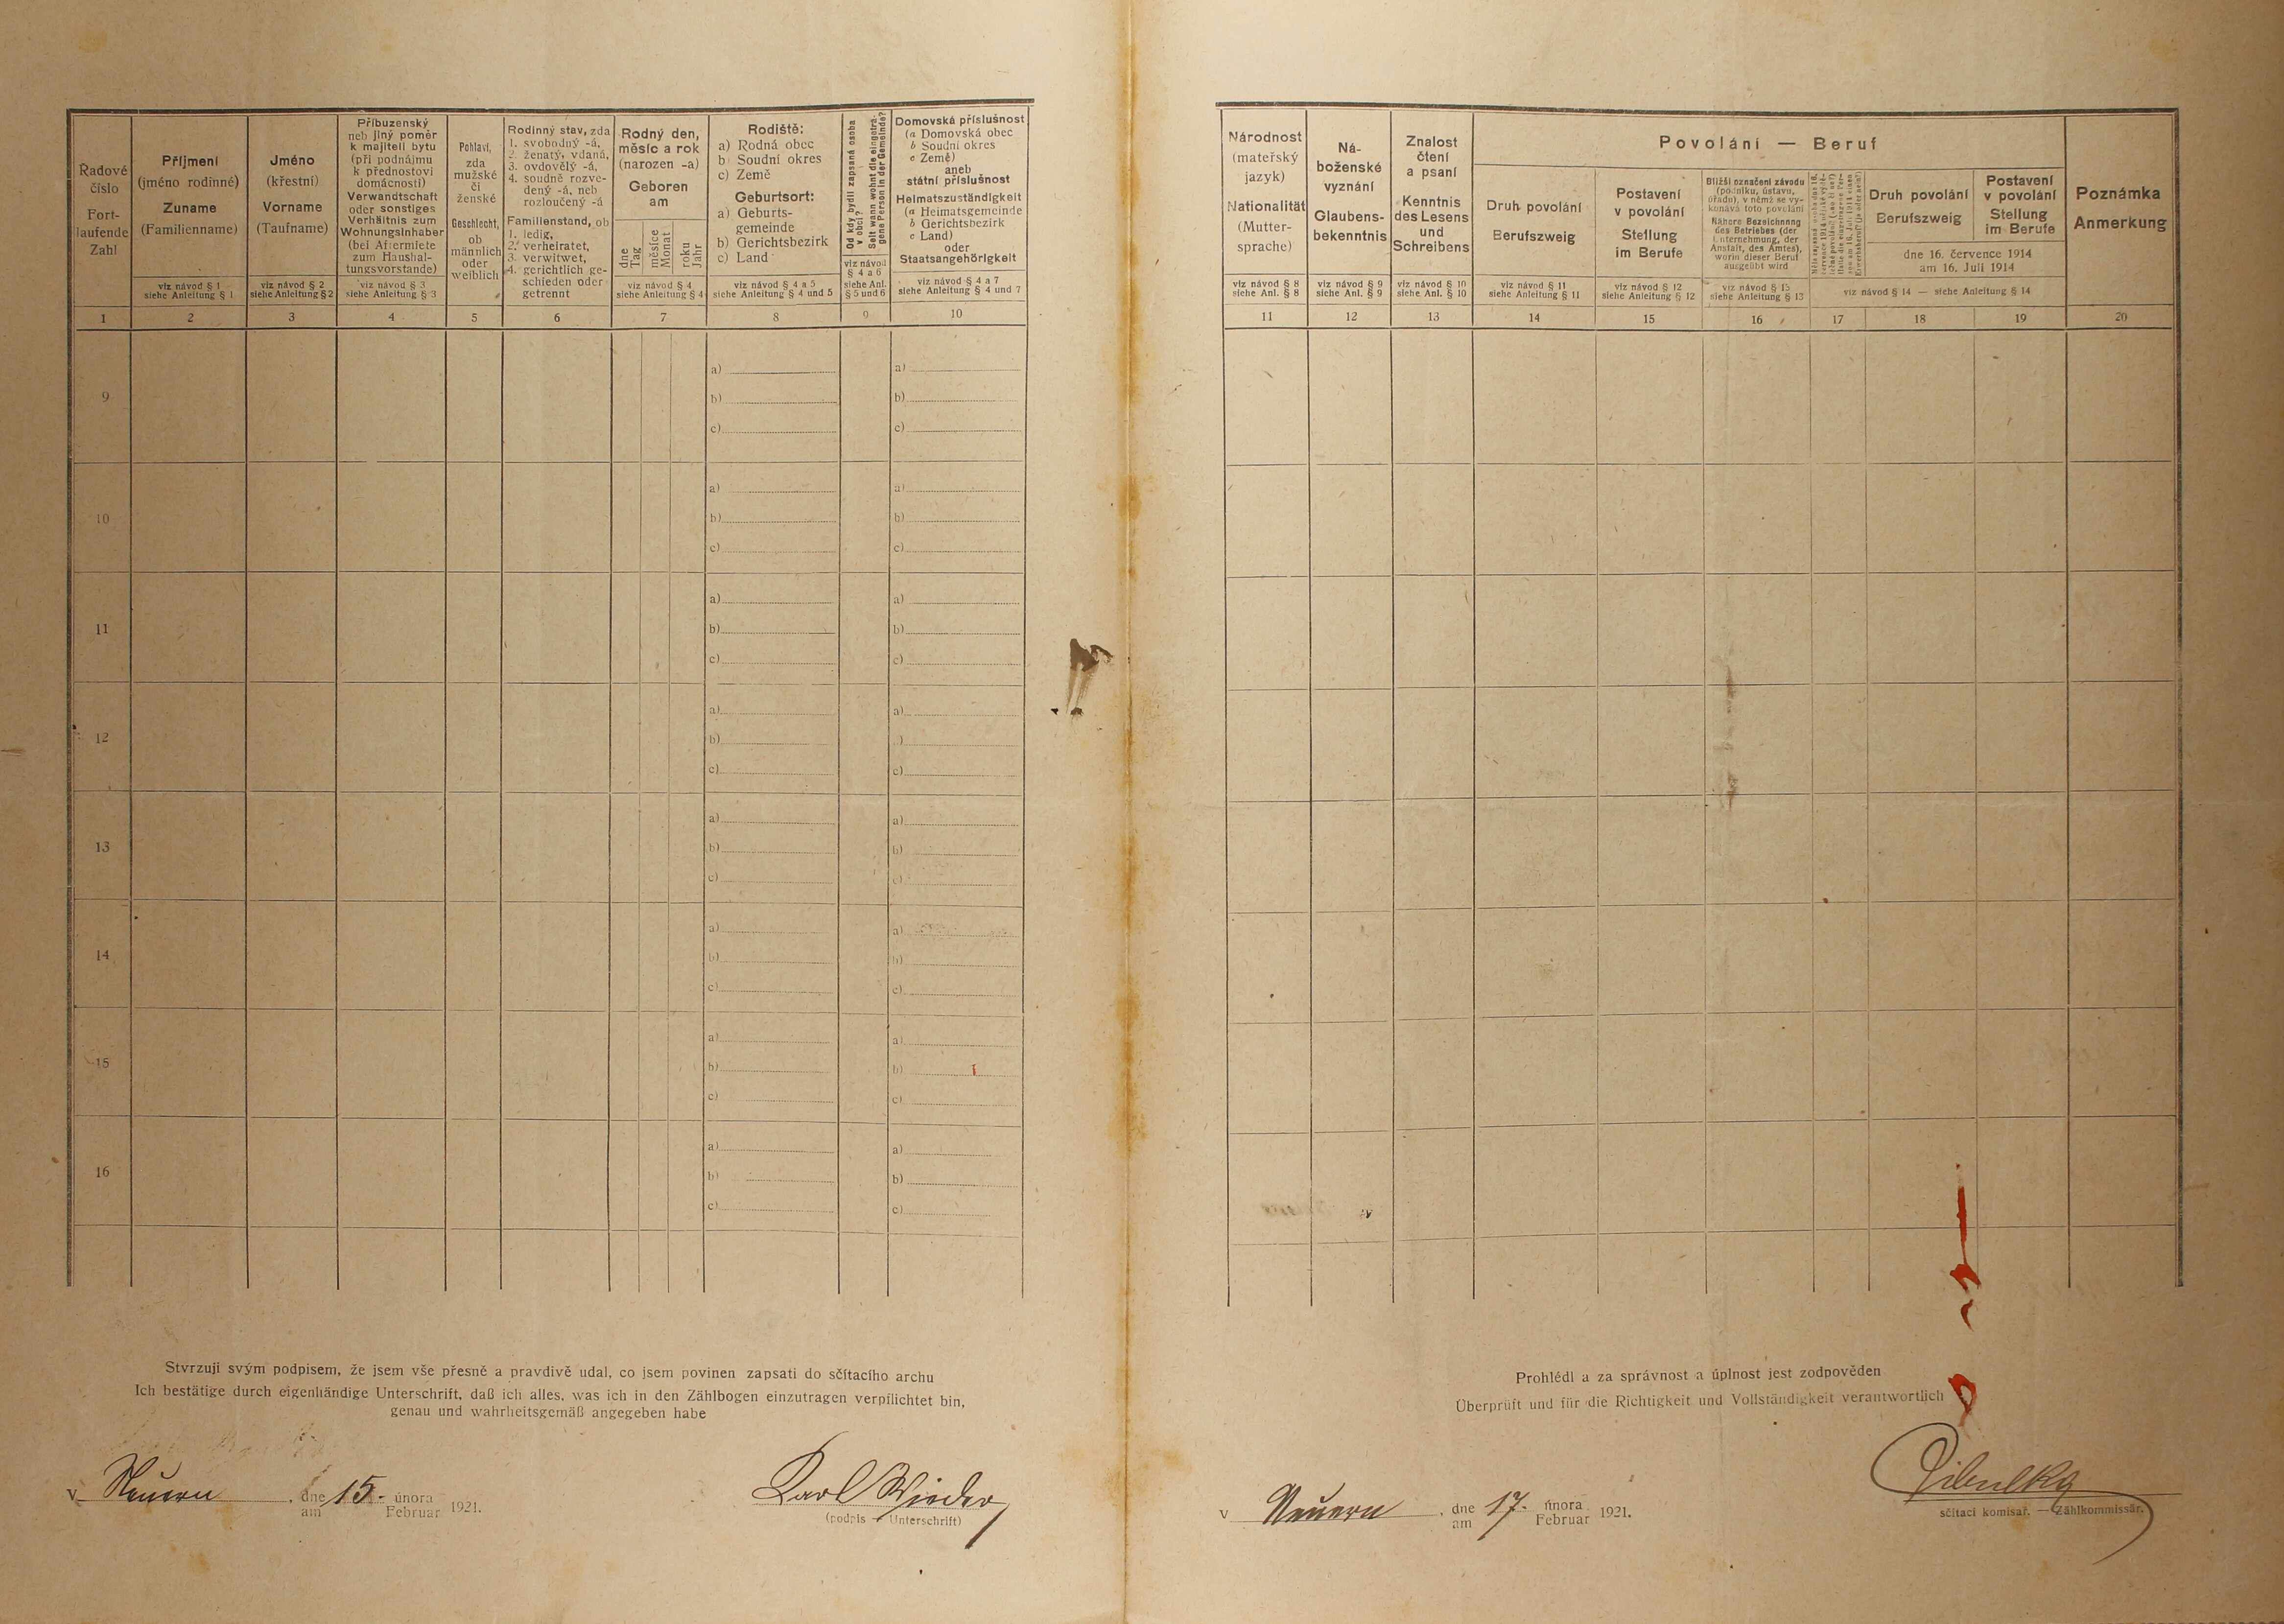 Radové
číslo
Fort-
laufende
Zahl
1
Příjmení
(jméno rodinné)
Zuname
(Familienname)
viz návod § 1
siehe Anleitung § 1
2
Jméno
(křestní)
Vorname
(Taufname)
viz návod § 2
siehe Anleitung § 2
3
Příbuzenský
neb jiný poměr
k majiteli bytu
(při podnájmu
k přednostovi
domácnosti)
Verwandtschaft
oder sonstiges
Verhältnis zum
Wohnungsinhaber
(bei Aftermiete
zum Haushal-
tungsvorstande)
viz návod § 3
siehe Anleitung § 3
4
Pohlaví,
zda
mužské
či
ženské
Geschlecht,
ob
männlich
oder
weiblich
5
Rodinný stav, zda
1. svobodný -á,
2. ženatý, vdaná,
3. ovdovělý -á,
4. soudně rozve-
dený -á, neb
rozloučený -á
Familienstand, ob
1. ledig,
2. verheiratet,
3. verwitwet,
4. gerichtlich ge-
schieden oder
getrennt
6
Rodný den,
měsíc a rok
(narozen -a)
Geboren
am
dne
Tag
měsíce
Monat
roku
Jahr
viz návod § 4
siehe Anleitung § 4
7
Rodiště:
a) Rodná obec
b) Soudní okres
c) Země
Geburtsort:
a) Geburts-
gemeinde
b) Gerichtsbezirk
c) Land
viz návod § 4 a 5
siehe Anleitung § 4 und 5
8
Od kdy bydlí zapsaná osoba
v obci?
Seit wann wohnt die eingetra-
gene Person in der Gemeinde?
viz návod
§ 4 a 6
siehe Anl.
§ 5 und 6
9
Domovská příslušnost
(a Domovská obec
b Soudní okres
c Země)
aneb
státní příslušnost
Heimatszuständigkeit
(a Heimatsgemeinde
b Gerichtsbezirk
c Land)
oder
Staatsangehörigkeit
viz návod § 4 a 7
siehe Anleitung § 4 und 7
10
Národnost
(mateřský
jazyk)
Nationalität
(Mutter-
sprache)
viz návod § 8
siehe Anl. § 8
11
Ná-
boženské
vyznání
Glaubens-
bekenntnis
viz návod § 9
siehe Anl. § 9
12
Znalost
čtení
a psaní
Kenntnis
des Lesens
und
Schreibens
viz návod § 10
siehe Anl. § 10
13
Povolání — Beruf
Druh povolání
Berufszweig
viz návod § 11
siehe Anleitung § 11
14
Postavení
v povolání
Stellung
im Berufe
viz návod § 12
siehe Anleitung § 12
15
Bližší označení závodu
(podniku, ústavu,
úřadu), v němž se vy-
konává toto povolání
Nähere Bezeichnung
des Betriebes (der
Unternehmung, der
Anstalt, des Amtes),
worin dieser Beruf
ausgeübt wird
viz návod § 13
siehe Anleitung § 13
16
17
Druh povolání
Berufszweig
Postavení
v povolání
Stellung
im Berufe
dne 16. července 1914
am 16. Juli 1914
viz návod § 14 — siehe Anleitung § 14
18
19
Poznámka
Anmerkung
20
9
a)
b)
c)
a)
b)
c)
10
a)
b)
c)
a)
b)
c)
11
a)
b)
c)
a)
b)
c)
12
a)
b)
c)
a)
)
c)
13
a)
b)
c)
a)
b)
c)
14
a)
b)
c)
a)
b)
c)
15
a)
b)
c)
a)
b)
c)
16
a)
b)
c)
a)
b)
c)
Stvrzuji svým podpisem, že jsem vše přesně a pravdivě udal, co jsem povinen zapsati do sčítacího archu
Ich bestätige durch eigenhändige Unterschrift, daß ich alles, was ich in den Zählbogen einzutragen verpflichtet bin,
genau und wahrheitsgemäß angegeben habe
v Neuern, dne 15. února 1921.
am Februar
Karl Wieder
(podpis — Unterschrift)
Prohlédl a za správnost a úplnost jest zodpověden
Überprüft und für die Richtigkeit und Vollständigkeit verantwortlich
v Neuern, dne 17. února 1921.
am Februar
Cibulka
sčítací komisař. — Zählkommissär.